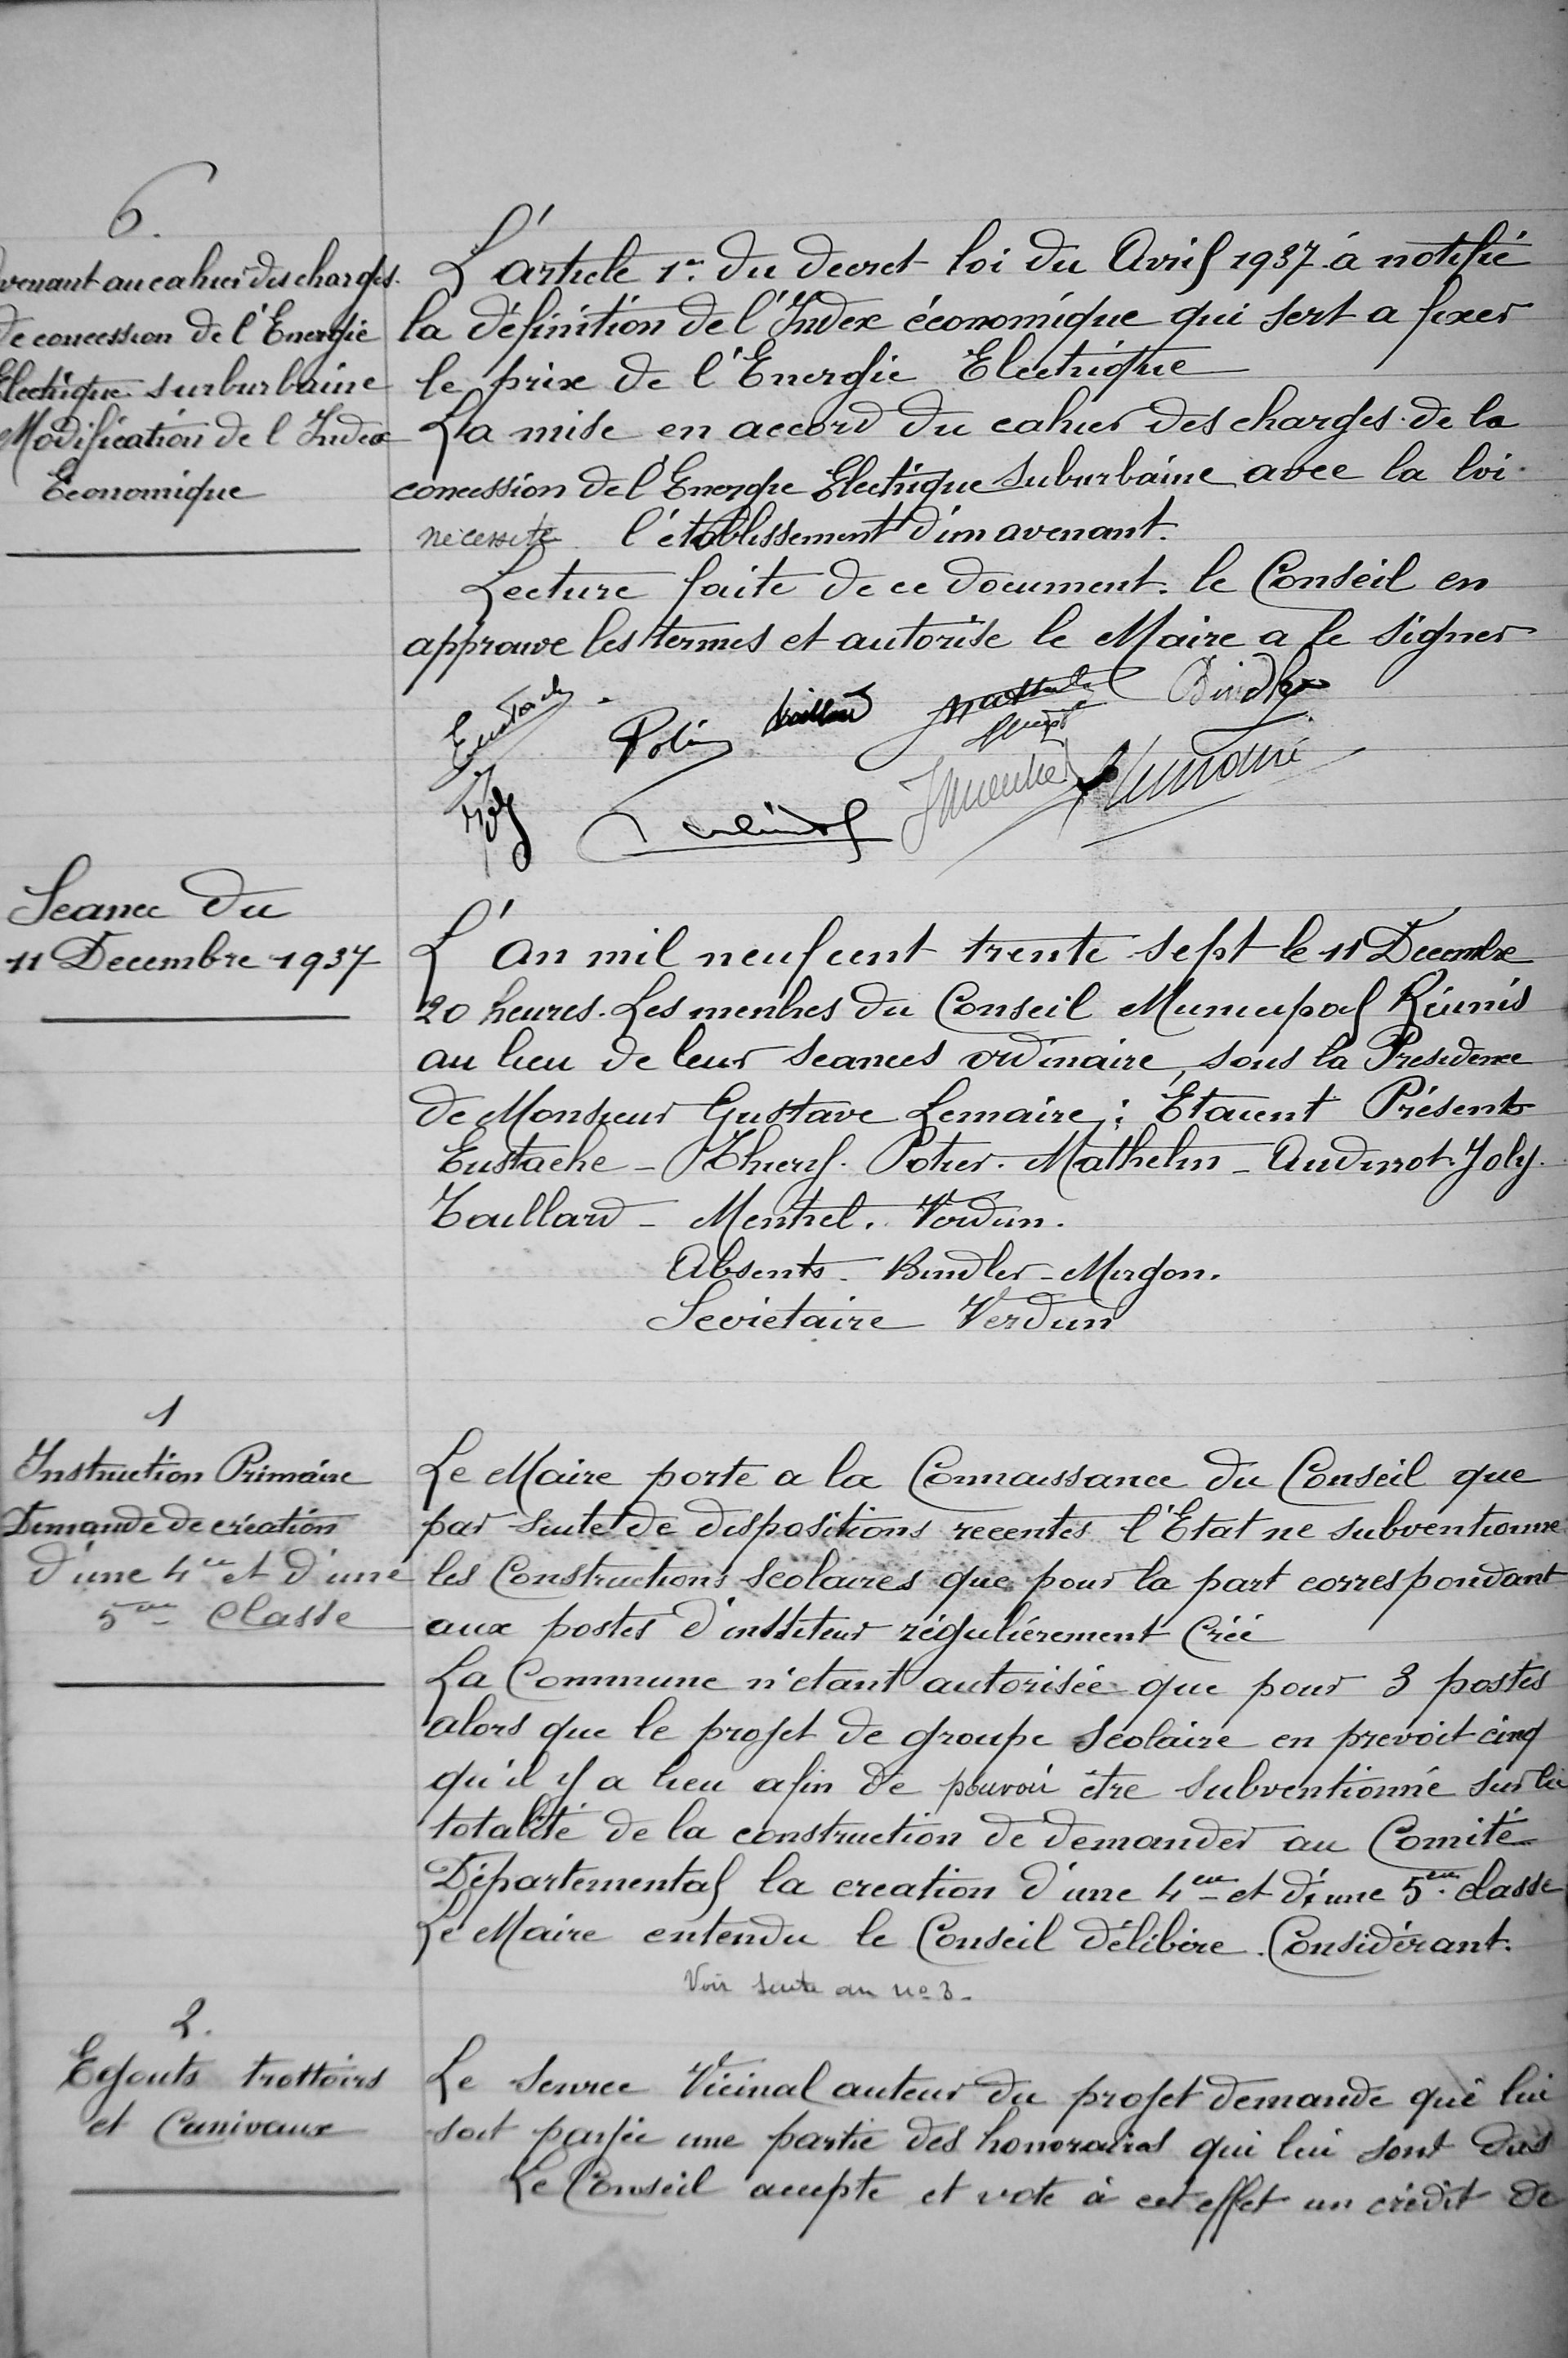 6.
venant au cahier des charges.
de concession de l'Energie
Electrique surburbaine
Modification de l'Index
Economique
L'article 1er du decret loi du Avril 1937 à notifié
la définition de l'Index économique qui sert a fixer
le prix de l'Energie Electrique
La mise en accord du cahier des charges de la
concession de l'Energie Electrique suburbaine avec la loi
nécessite l'établissement d'un avenant.
Lecture faite de ce document. le Conseil en
approuve les termes et autorise le Maire a le signer
Eustache
Taillard
Bindler
Lemaire
Seance du
11 Decembre 1937
L'an mil neuf cent trente sept le 11 Decembre
20 heures. Les menbres du Conseil Municipal Réunis
au lieu de leur seances ordinaire, sous la Presidence
de Monsieur Gustave Lemaire; Étaient Présents
Eustache - Thiery. Potier. Mathelin - Audinot. Joly.
Taillard - Mentrel. Verdun.
Absents. Bindler - Mugon.
Secrétaire Verdun
1
Instruction Primaire
Demande de création
d'une 4me et d'une
5me Classe
Le Maire porte a la Connaissance du Conseil que
par suite de dispositions recentes l'Etat ne subventionne
les Constructions Scolaires que pour la part correspondant
aux postes d'institeur régulièrement Créé
La Commune n'etant autorisée que pour 3 postes
alors que le projet de groupe Scolaire en prevoit cinq
qu'il y a lieu afin de pouvoir être subventionné sur la
totalité de la construction de demander au Comité
Départemental la creation d'une 4em et d'une 5em classe
Le Maire entendu le Conseil délibère. Considérant.
Voir suite au no 3.
2.
Egouts trottoirs
et Canivaux
Le Service Vicinal auteur du projet demande que lui
soit payée une partie des honoraires qui lui sont dus
Le Conseil accepte et vote à cet effet un crédit de